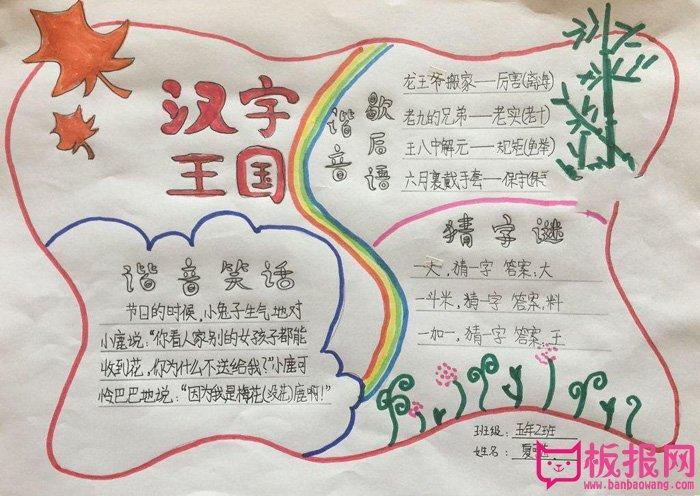 汉字
王国
谐音
歇后语
龙王爷搬家——厉害(离海)
老九的兄弟——老实(老十)
王八中解元——规矩(龟举)
六月裹戴手套——保守(保手)
谐音笑话
节日的时候，小兔子生气地对
小鹿说："你看人家别的女孩子都能
收到花，你为什么不送给我？"小鹿可
怜巴巴地说："因为我是梅花(没花)鹿啊！"
猜字谜
一大，猜一字 答案，大
一斗米，猜一字 答案，料
一加一，猜一字 答案，王
班级：五年2班
姓名：夏
板报网
www.banbaowang.com